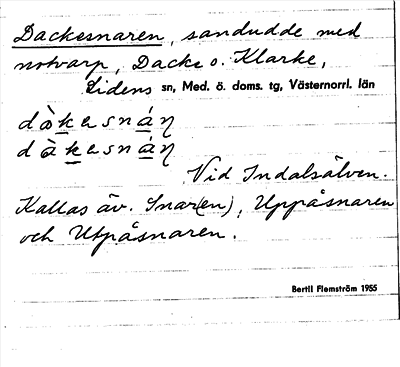 Dackesnaren, sandudde med
notvarp, Dacke o. Klarke,
Lidens sn, Med. ö. doms. tg, Västernorrl. län
Vid Indalsälven.
Kallas äv. Snar(en), Uppåsnaren
och Utpåsnaren.
Bertil Flemström 1955